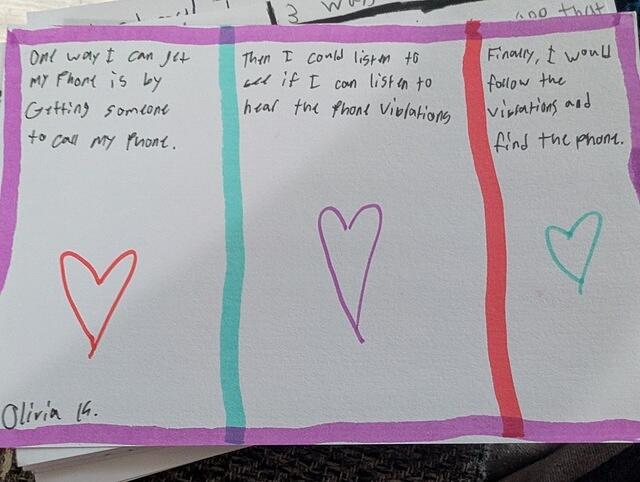 3 Wa
and that
One way I can get
my phone is by
Getting someone
to call my phone.
Then I could listen to
see if I can listen to
hear the phone vibrations
Finally, I would
follow the
vibrations and
find the phone.
Olivia K.